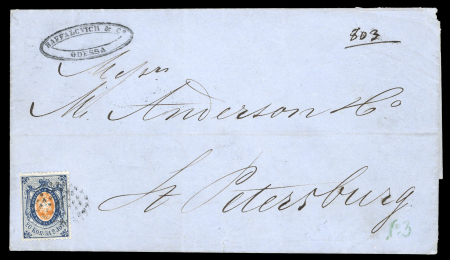 RAFFALOVICH & Cº
ODESSA
803
Messrs
M. Anderson & Co
St Petersburg